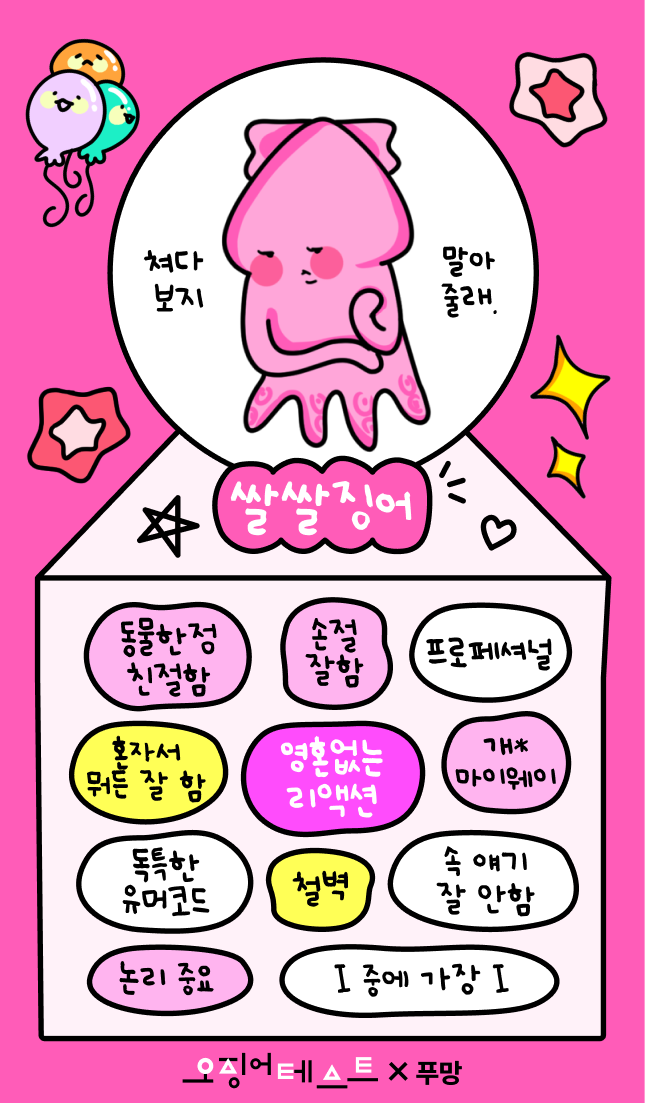 쳐다
보지
말아
줄래.
쌀쌀징어
동물한점
친절함
손절
잘함
프로페셔널
혼자서
뭐든 잘 함
영혼없는
리액션
개*
마이웨이
독특한
유머코드
철벽
속 얘기
잘 안함
논리 중요
I 중에 가장 I
오징어테스트 × 푸망